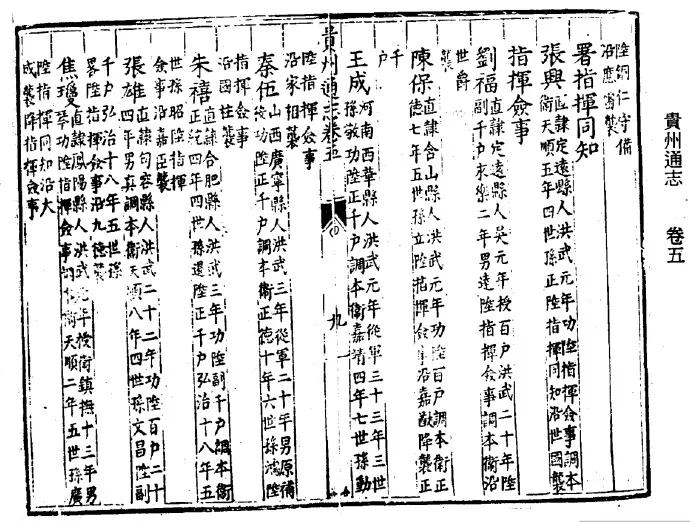 貴州通志　卷五
陞銅仁守備
沿應甯襲
署指揮同知
張興直隷定遠縣人洪武元年功陞指揮僉事調本
衛天順五年四世孫正陞指揮同知沿世國襲
指揮僉事
劉福直隷定遠縣人吳元年授百户洪武二十年陞
副千户永樂二年男遠陞指揮僉事調本衛沿
世爵
襲
陳保直隷合山縣人洪武元年功陞百户調本衛正
德七年五世孫立陞指揮僉事沿嘉猷降襲正
千
户
王成河南西華縣人洪武元年從軍三十三年三世
孫敦功陞正千户調本衛嘉靖四年七世孫勳
貴州通志卷五
九
陞指揮僉事
沿家相襲
秦伍山西廣寧縣人洪武三年從軍二十年男原補
役功陞正千户調本衛正德十年六世孫鴻陞
指揮僉事
沿國柱襲
朱禧直隷合肥縣人洪武三年功陞副千户調本衛
正統四年四世孫還陞正千户弘治十八年五
世孫昭陞指揮
僉事沿嘉臣襲
張雄直隷句容縣人洪武二十二年功陞百户二十
四年男真調本衛天順八年四世孫文昌陞副
千户弘治十八年五世孫
畧陞指揮僉事沿九德襲
焦瓊直隷鳳陽縣人洪武元年授衛鎮撫十三年男
琴功陞指揮僉事調衛天順二年五世孫廣
陞指揮同知沿大
成襲降指揮僉事